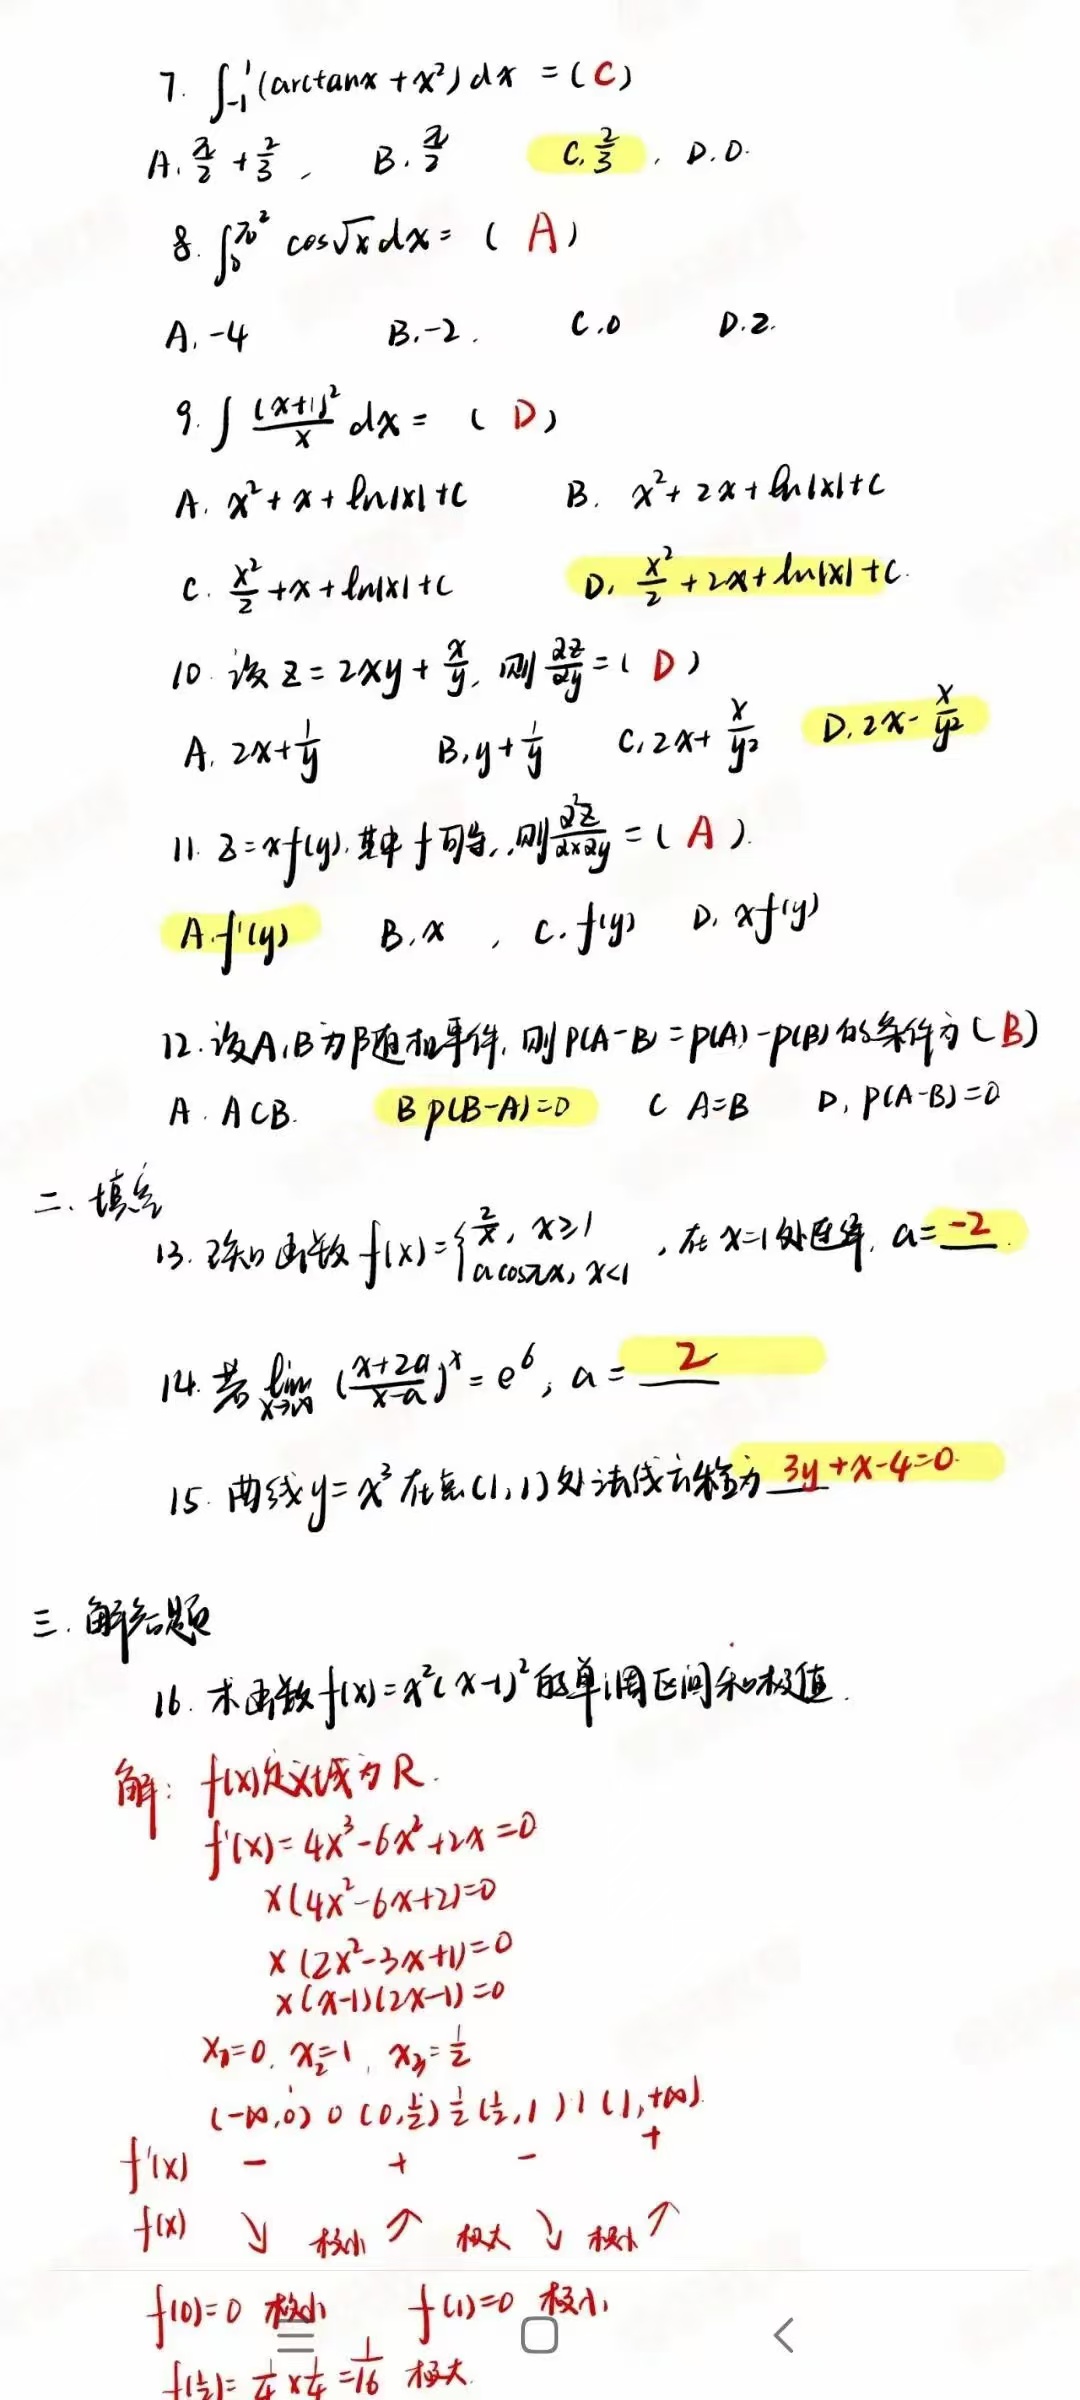 7. ∫₋₁¹ (arctanx + x²) dx = ( C )
A. π/2 + 2/3 , B. π/2 C. 2/3 , D. 0.
8. ∫₀^π² cos√x dx = ( A )
A. -4 B. -2. C. 0 D. 2.
9. ∫ (x+1)²/x dx = ( D )
A. x² + x + ln|x| + C B. x² + 2x + ln|x| + C
C. x²/2 + x + ln|x| + C D. x²/2 + 2x + ln|x| + C.
10. 设 z = 2xy + x/y, 则 ∂z/∂y = ( D )
A. 2x + 1/y B. y + 1/y C. 2x + x/y² D. 2x - x/y²
11. z = xf(y), 其中 f 可导, 则 ∂²z/∂x∂y = ( A ).
A. f'(y) B. x , C. f(y) D. xf(y)
12. 设A,B为随机事件, 则P(A-B) = P(A) - P(B) 的条件为 ( B )
A. A⊂B. B P(B-A)=0 C A=B D. P(A-B)=0
二. 填空
13. 已知函数 f(x) = { 2/x, x≥1 ; acosπx, x<1 , 在 x=1 处连续, a = -2 .
14. 若 lim x→∞ ((x+2a)/(x-a))^x = e⁶, a = 2
15. 曲线 y = x³ 在点 (1,1) 处法线方程为 3y+x-4=0.
三. 解答题
16. 求函数 f(x) = x²(x-1)² 的单调区间和极值.
解: f(x)定义域为R.
f'(x) = 4x³-6x²+2x=0
x(4x²-6x+2)=0
x(2x²-3x+1)=0
x(x-1)(2x-1)=0
x₁=0, x₂=1, x₃=1/2
(-∞,0) 0 (0,1/2) 1/2 (1/2,1) 1 (1,+∞)
f'(x) - + - +
f(x) ↘ 极小 ↗ 极大 ↘ 极小 ↗
f(0)=0 极小 f(1)=0 极小
f(1/2)= 1/4 × 1/4 = 1/16 极大